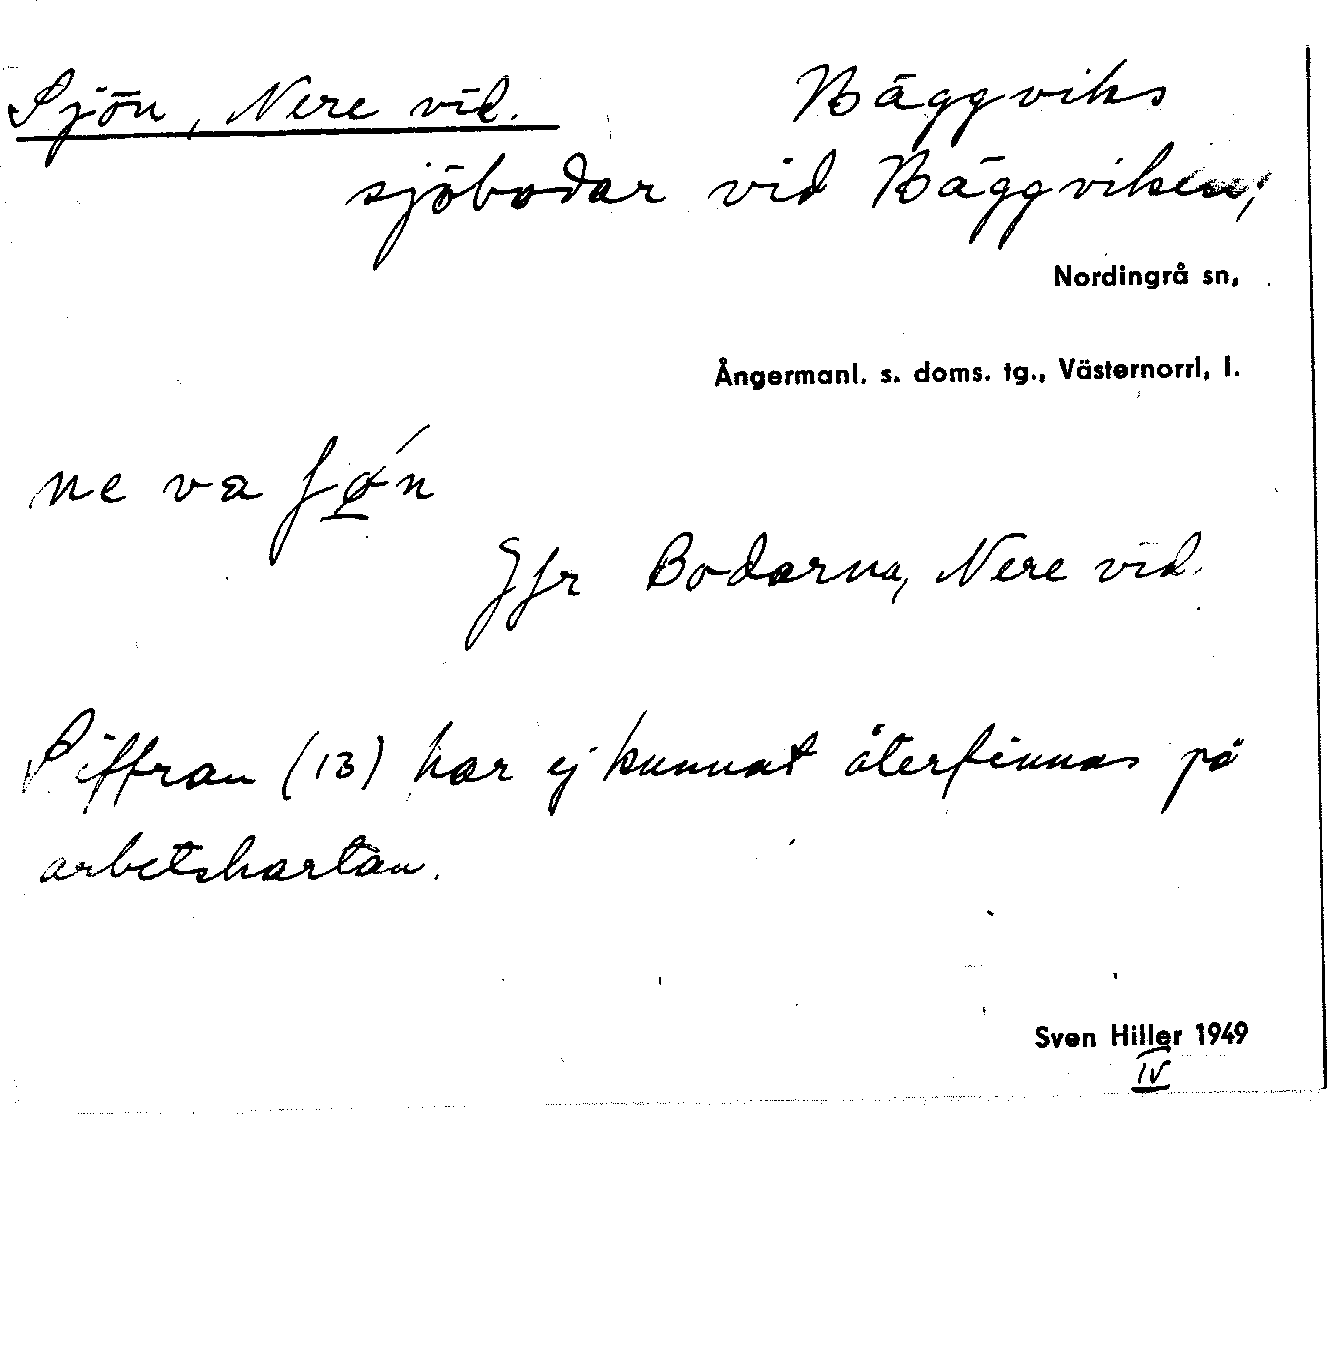 Sjön, Nere vid. Bäggviks
sjöbodar vid Bäggviken,
Nordingrå sn,
Ångermanl. s. doms. tg., Västernorrl, l.
ne va ʃǿn
Jfr Bodarna, Nere vid.
Siffran (13) har ej kunnat återfinnas på
arbetskartan.
Sven Hiller 1949
IV